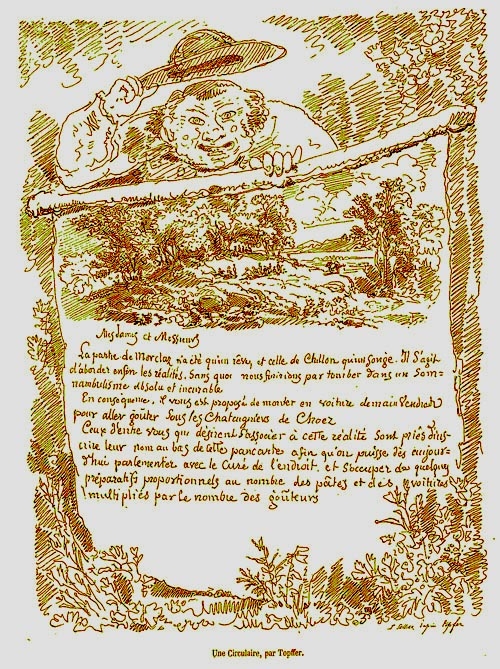 Mesdames et Messieurs
La partie de Morclaz n'a été qu'un rêve, et celle de Chillon qu'un songe. Il S'agit
d'aborder enfin les réalités, Sans quoi nous finirions par tomber dans un Som-
nambulisme absolu et incurable
En conséquence, il vous est proposé de monter en voiture demain Vendredi
pour aller goûter Sous les Chataigniers de Choez
Ceux d'entre vous qui désirent s'associer à cette réalité Sont priés d'ins-
crire leur nom au bas de cette pancarte afin qu'on puisse dès aujour-
d'hui parlementer avec le Curé de l'endroit, et S'occuper des quelques
préparatifs proportionnels au nombre des pâtes et des voitures
multipliés par le nombre des goûteurs
Une Circulaire, par Topffer.